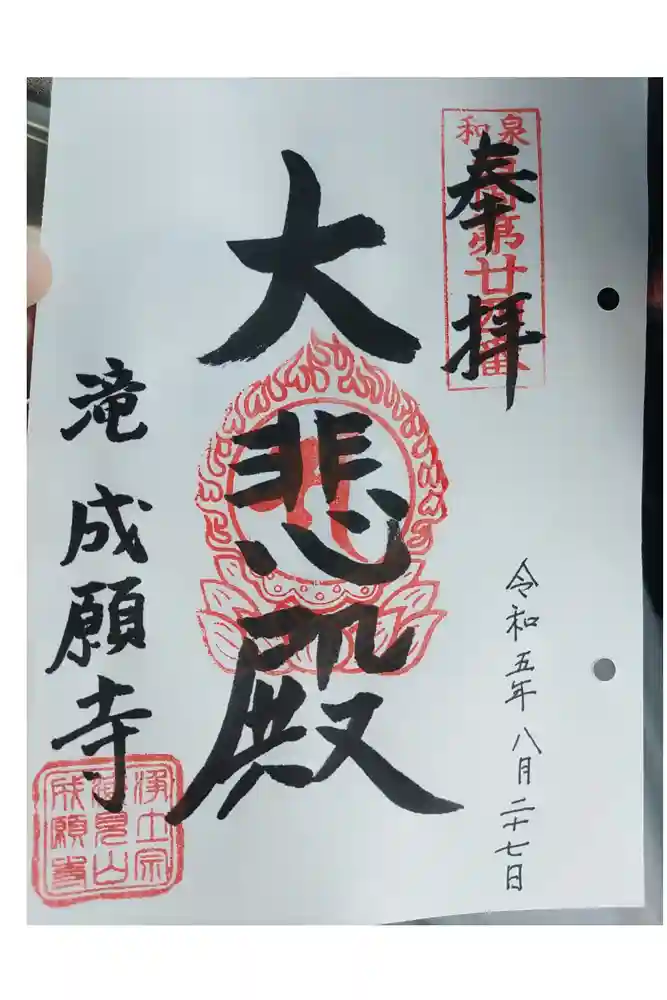 和泉
西国第廿四番
奉拝
大悲殿
令和五年八月二十七日
滝 成願寺
浄土宗
成願寺